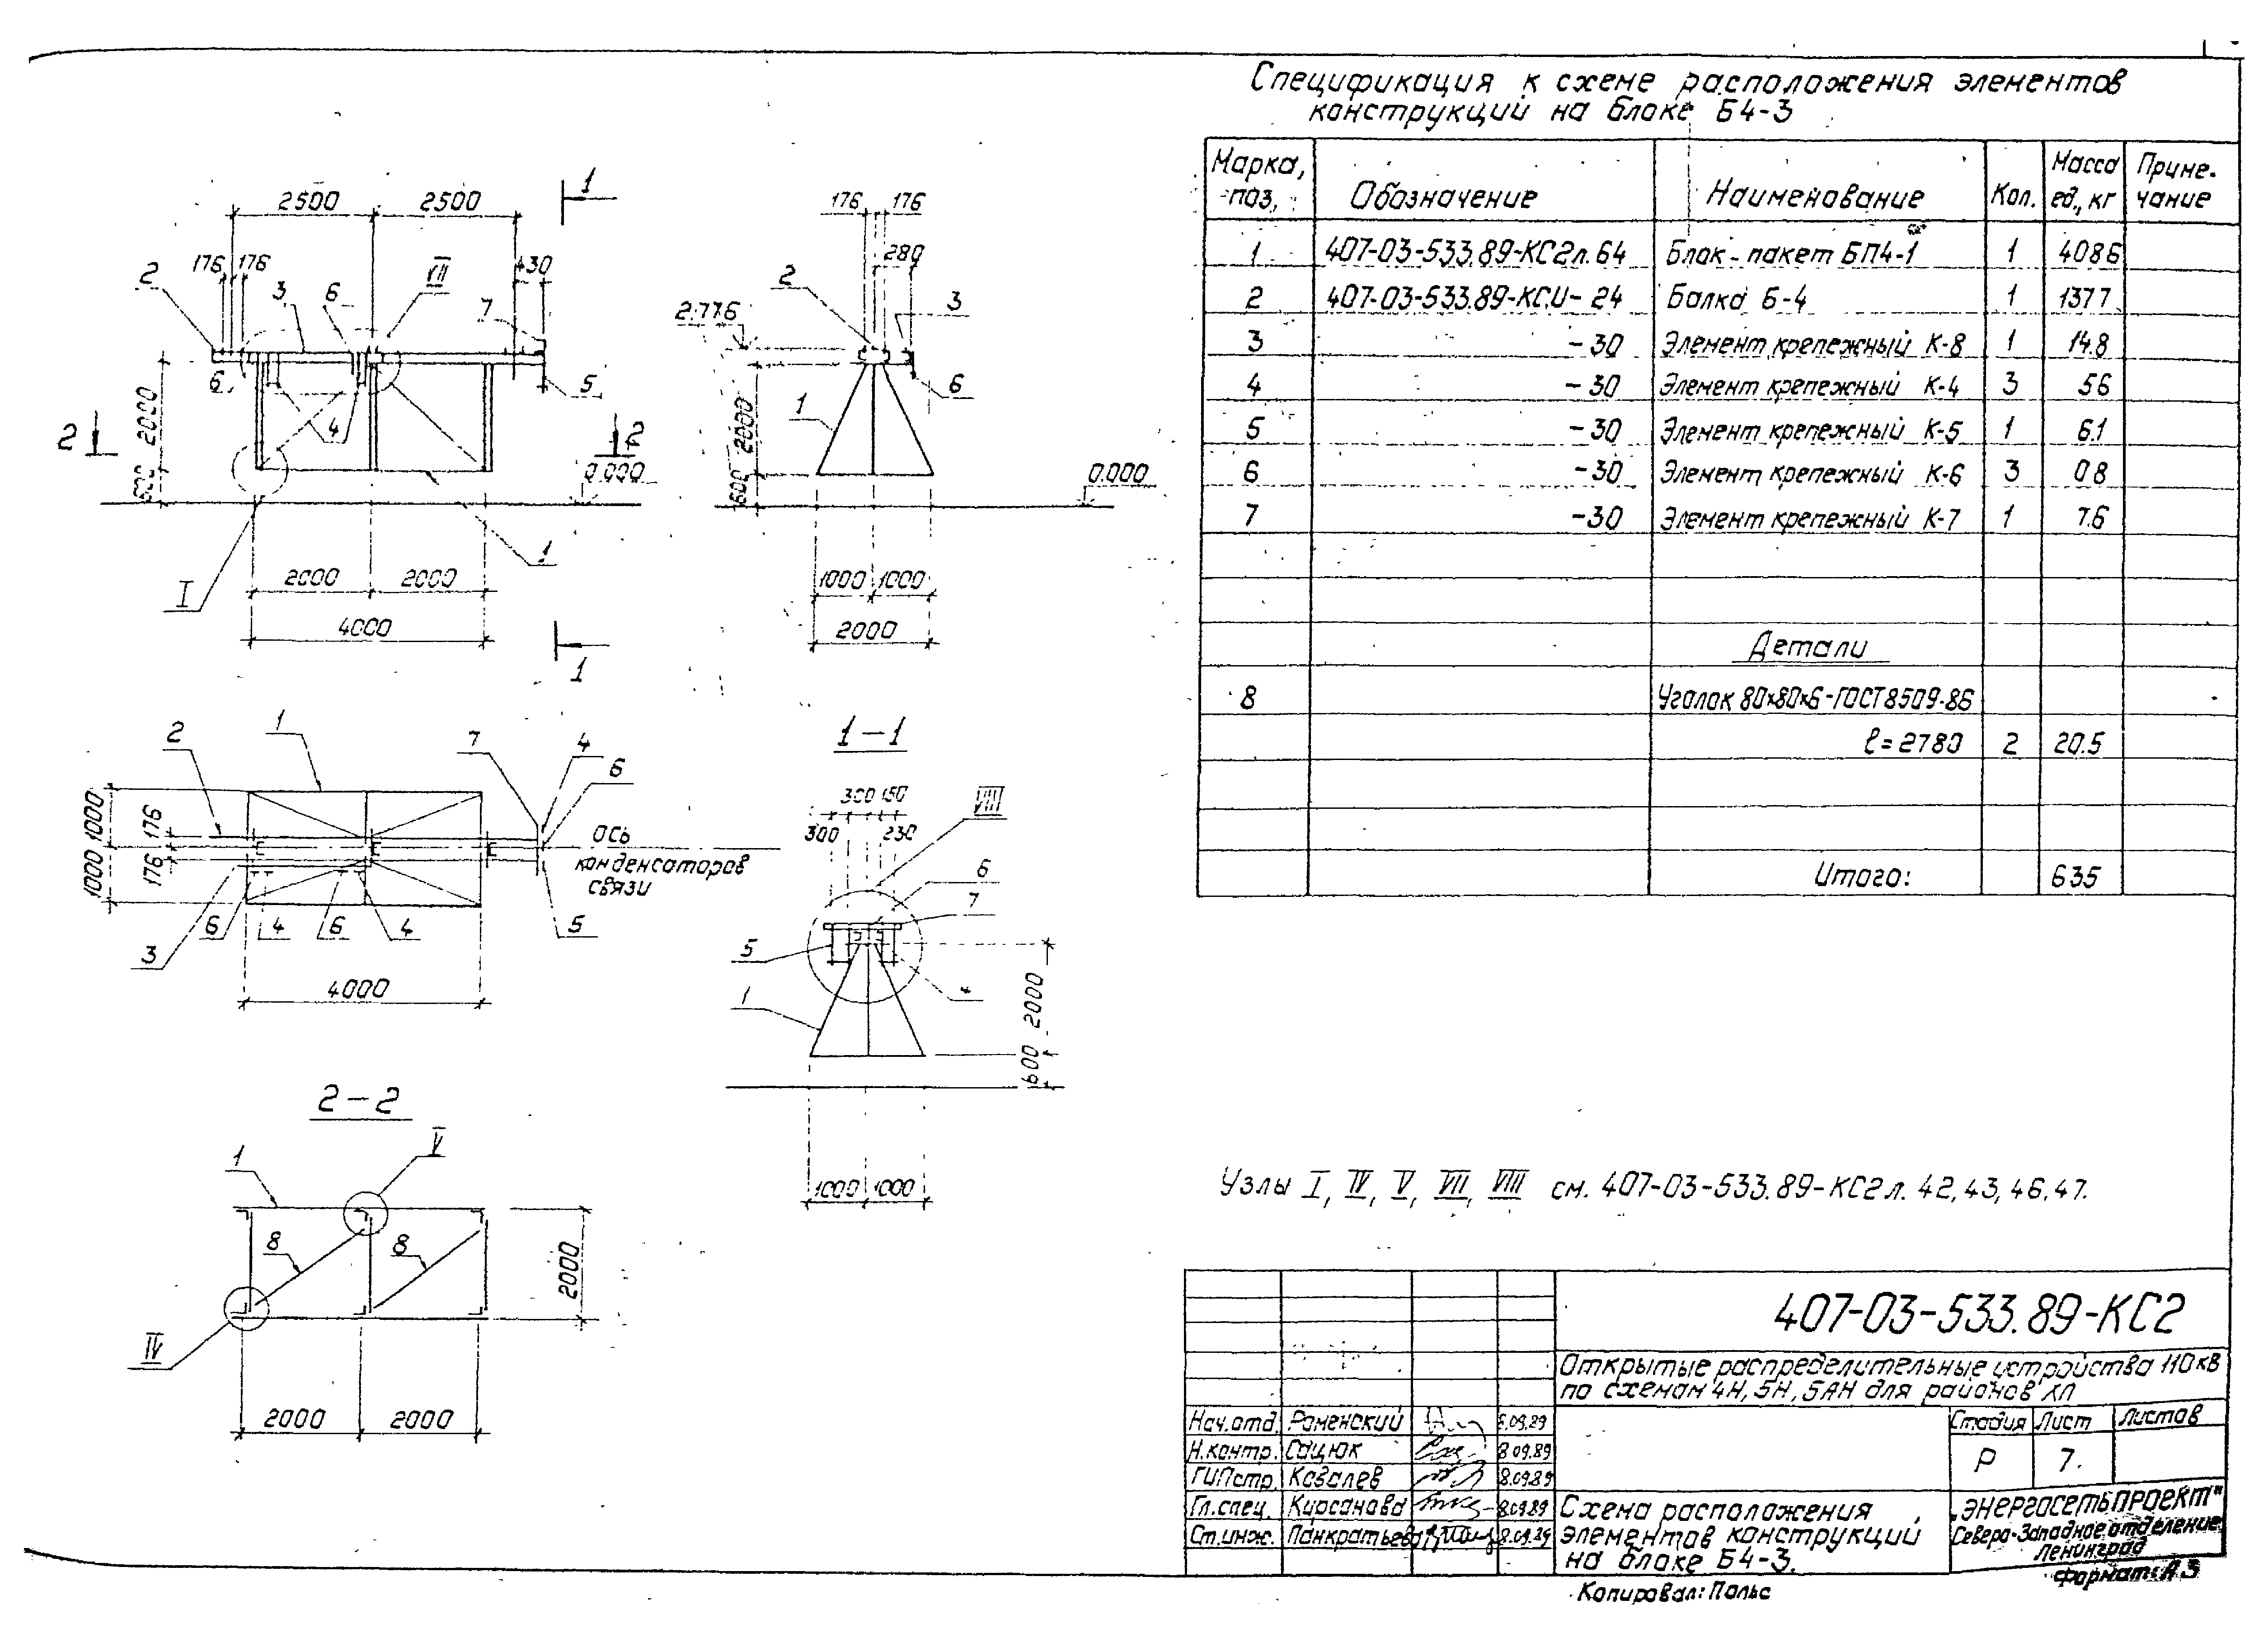 Спецификация к схеме расположения элементов
конструкций на блоке Б4-3
Марка, поз. Обозначение Наименование Кол. Масса ед., кг Приме-чание
1 407-03-533.89-КС2л.64 Блок-пакет БП4-1 1 408.6
2 407-03-533.89-КСИ-24 Балка Б-4 1 137.7
3 -30 Элемент крепежный К-8 1 14.8
4 -30 Элемент крепежный К-4 3 5.6
5 -30 Элемент крепежный К-5 1 6.1
6 -30 Элемент крепежный К-6 3 0.8
7 -30 Элемент крепежный К-7 1 7.6
Детали
8 Уголок 80×80×6-ГОСТ8509-86
ℓ=2780 2 20.5
Итого: 635
2500 2500 1
176 176 430
2 3 6 VII 7
6 4 5
2 2
2000 600
0.000
I 1
2000 2000
4000
1
176 176
280
2 3
2.776
1 6
2000 600
0.000
1000 1000
2000
1 2 7 4 6
1000 1000 176 176
ось
конденсаторов
связи
6 4 6 4 5
3
4000
1-1
300 150
300 230
VIII
6
7
5
4
1
2000 600
1000 1000
2-2
1 V
8 8
2000
IV
2000 2000
Узлы I, IV, V, VII, VIII см. 407-03-533.89-КС2л. 42, 43, 46, 47.
407-03-533.89-КС2
Открытые распределительные устройства 110кВ
по схемам 4Н, 5Н, 5АН для районов ХЛ
Нач.отд. Роменский 8.09.89
Н.контр. Сацюк 8.09.89
ГИПстр. Ковалев 8.09.89
Гл.спец. Кирсанова 8.09.89
Ст.инж. Панкратьева 8.09.89
Стадия Лист Листов
Р 7.
Схема расположения
элементов конструкций
на блоке Б4-3.
„ЭНЕРГОСЕТЬПРОЕКТ"
Северо-Западное отделение
Ленинград
Копировал: Пальс
формат: А3